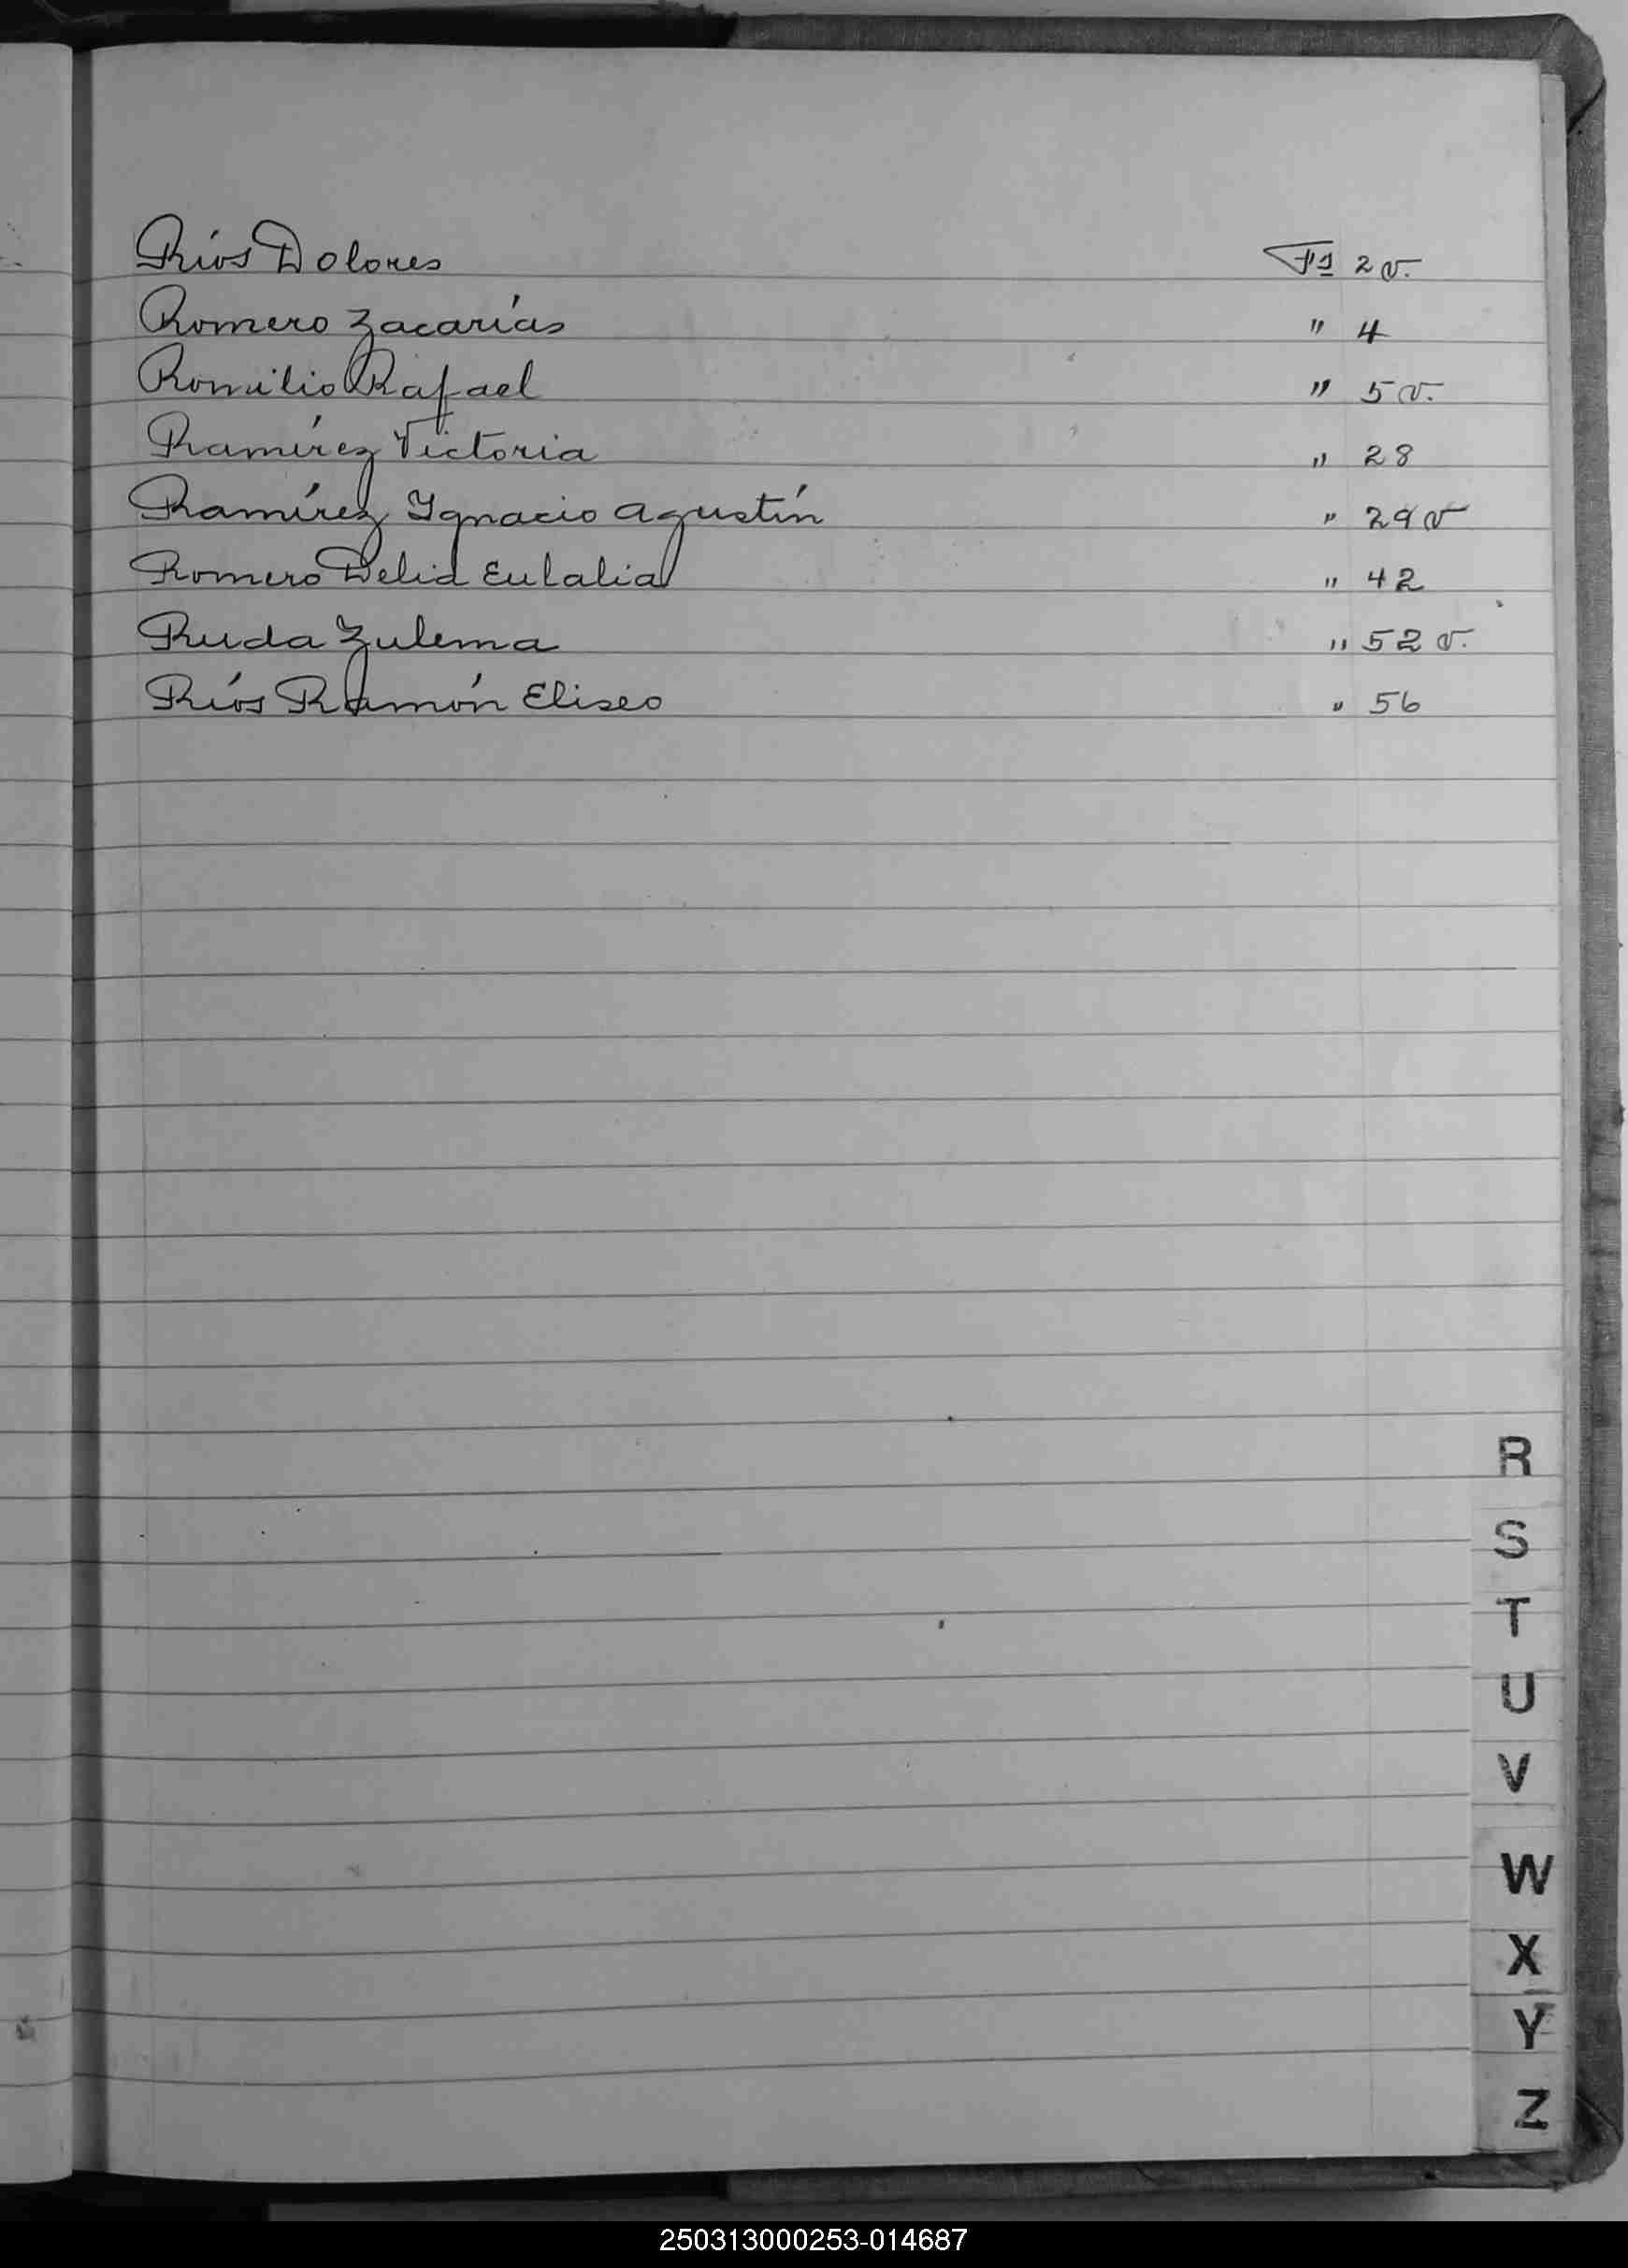 Ríos Dolores Fs 2 v.
Romero Zacarías " 4
Romilio Rafael " 5 v.
Ramírez Victoria " 28
Ramírez Ignacio Agustín " 29 v
Romero Delia Eulalia " 42
Ruda Zulema " 52 v.
Ríos Ramón Eliseo " 56
R
S
T
U
V
W
X
Y
Z
250313000253-014687